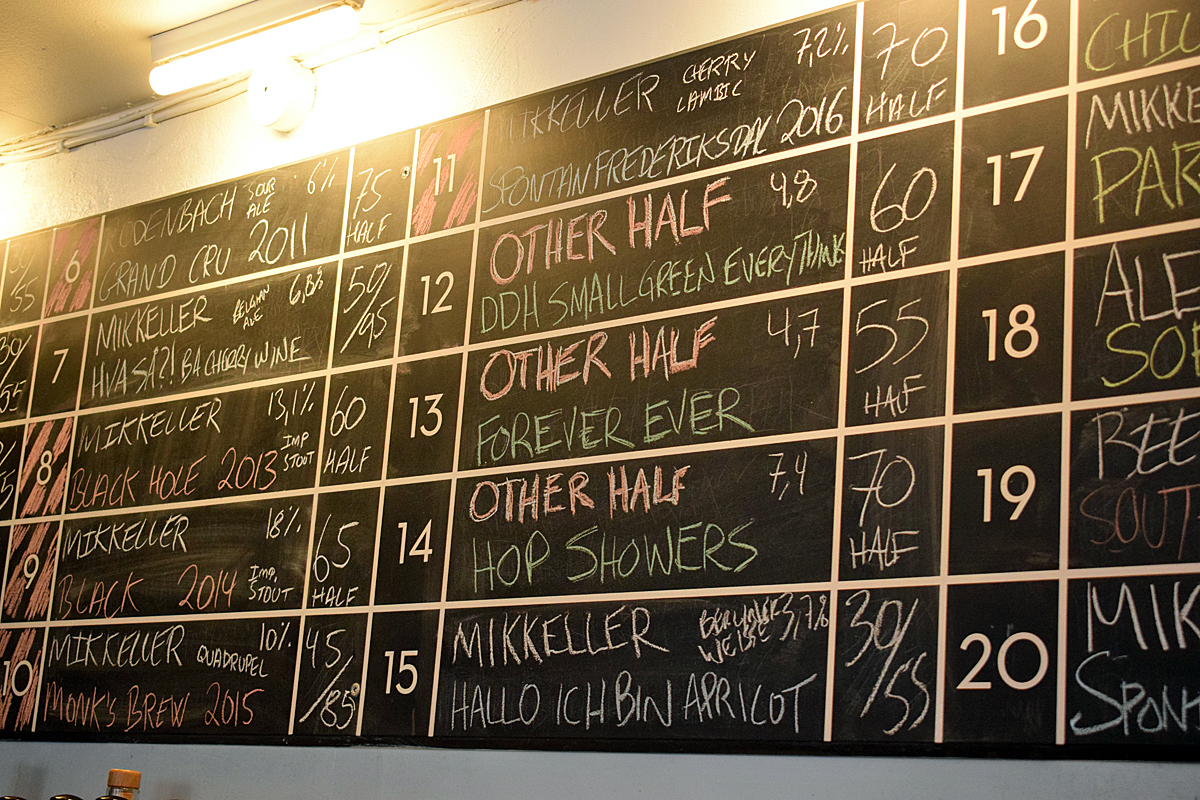 55
6
RODENBACH SOUR ALE 6%
GRAND CRU 2011
75 HALF
55
7
MIKKELLER BELGIAN ALE 6,8%
HVA SÅ?! BA CHERRY WINE
50/95
8
MIKKELLER 13,1%
BLACK HOLE 2013 IMP STOUT
60 HALF
9
MIKKELLER 18%
BLACK 2014 IMP. STOUT
65 HALF
10
MIKKELLER QUADRUPEL 10%
MONK'S BREW 2015
45/85
11
MIKKELLER CHERRY LAMBIC 7,2%
SPONTANFREDERIKSDAL 2016
70 HALF
12
OTHER HALF 4,8
DDH SMALL GREEN EVERYTHING
60 HALF
13
OTHER HALF 4,7
FOREVER EVER
55 HALF
14
OTHER HALF 7,4
HOP SHOWERS
70 HALF
15
MIKKELLER BERLINER WEISE 3,7%
HALLO ICH BIN APRICOT
30/55
16
CHIL
17
MIKKE
PAR
18
ALE
SOR
19
BEE
SOUT
20
MIK
SPON